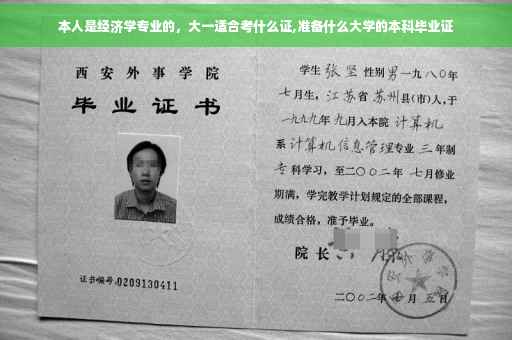 本人是经济学专业的，大一适合考什么证,准备什么大学的本科毕业证
西安外事学院
毕业证书
证书编号:0209130411
学生 张坚 性别 男 一九八〇年
七月生，江苏省 苏州 县(市)人,于
一九九九年 九月入本院 计算机
系 计算机信息管理 专业 三 年制
专 科学习，至二〇〇二年 七月修业
期满，学完教学计划规定的全部课程，
成绩合格，准予毕业。
院长
二〇〇二年 月 五日